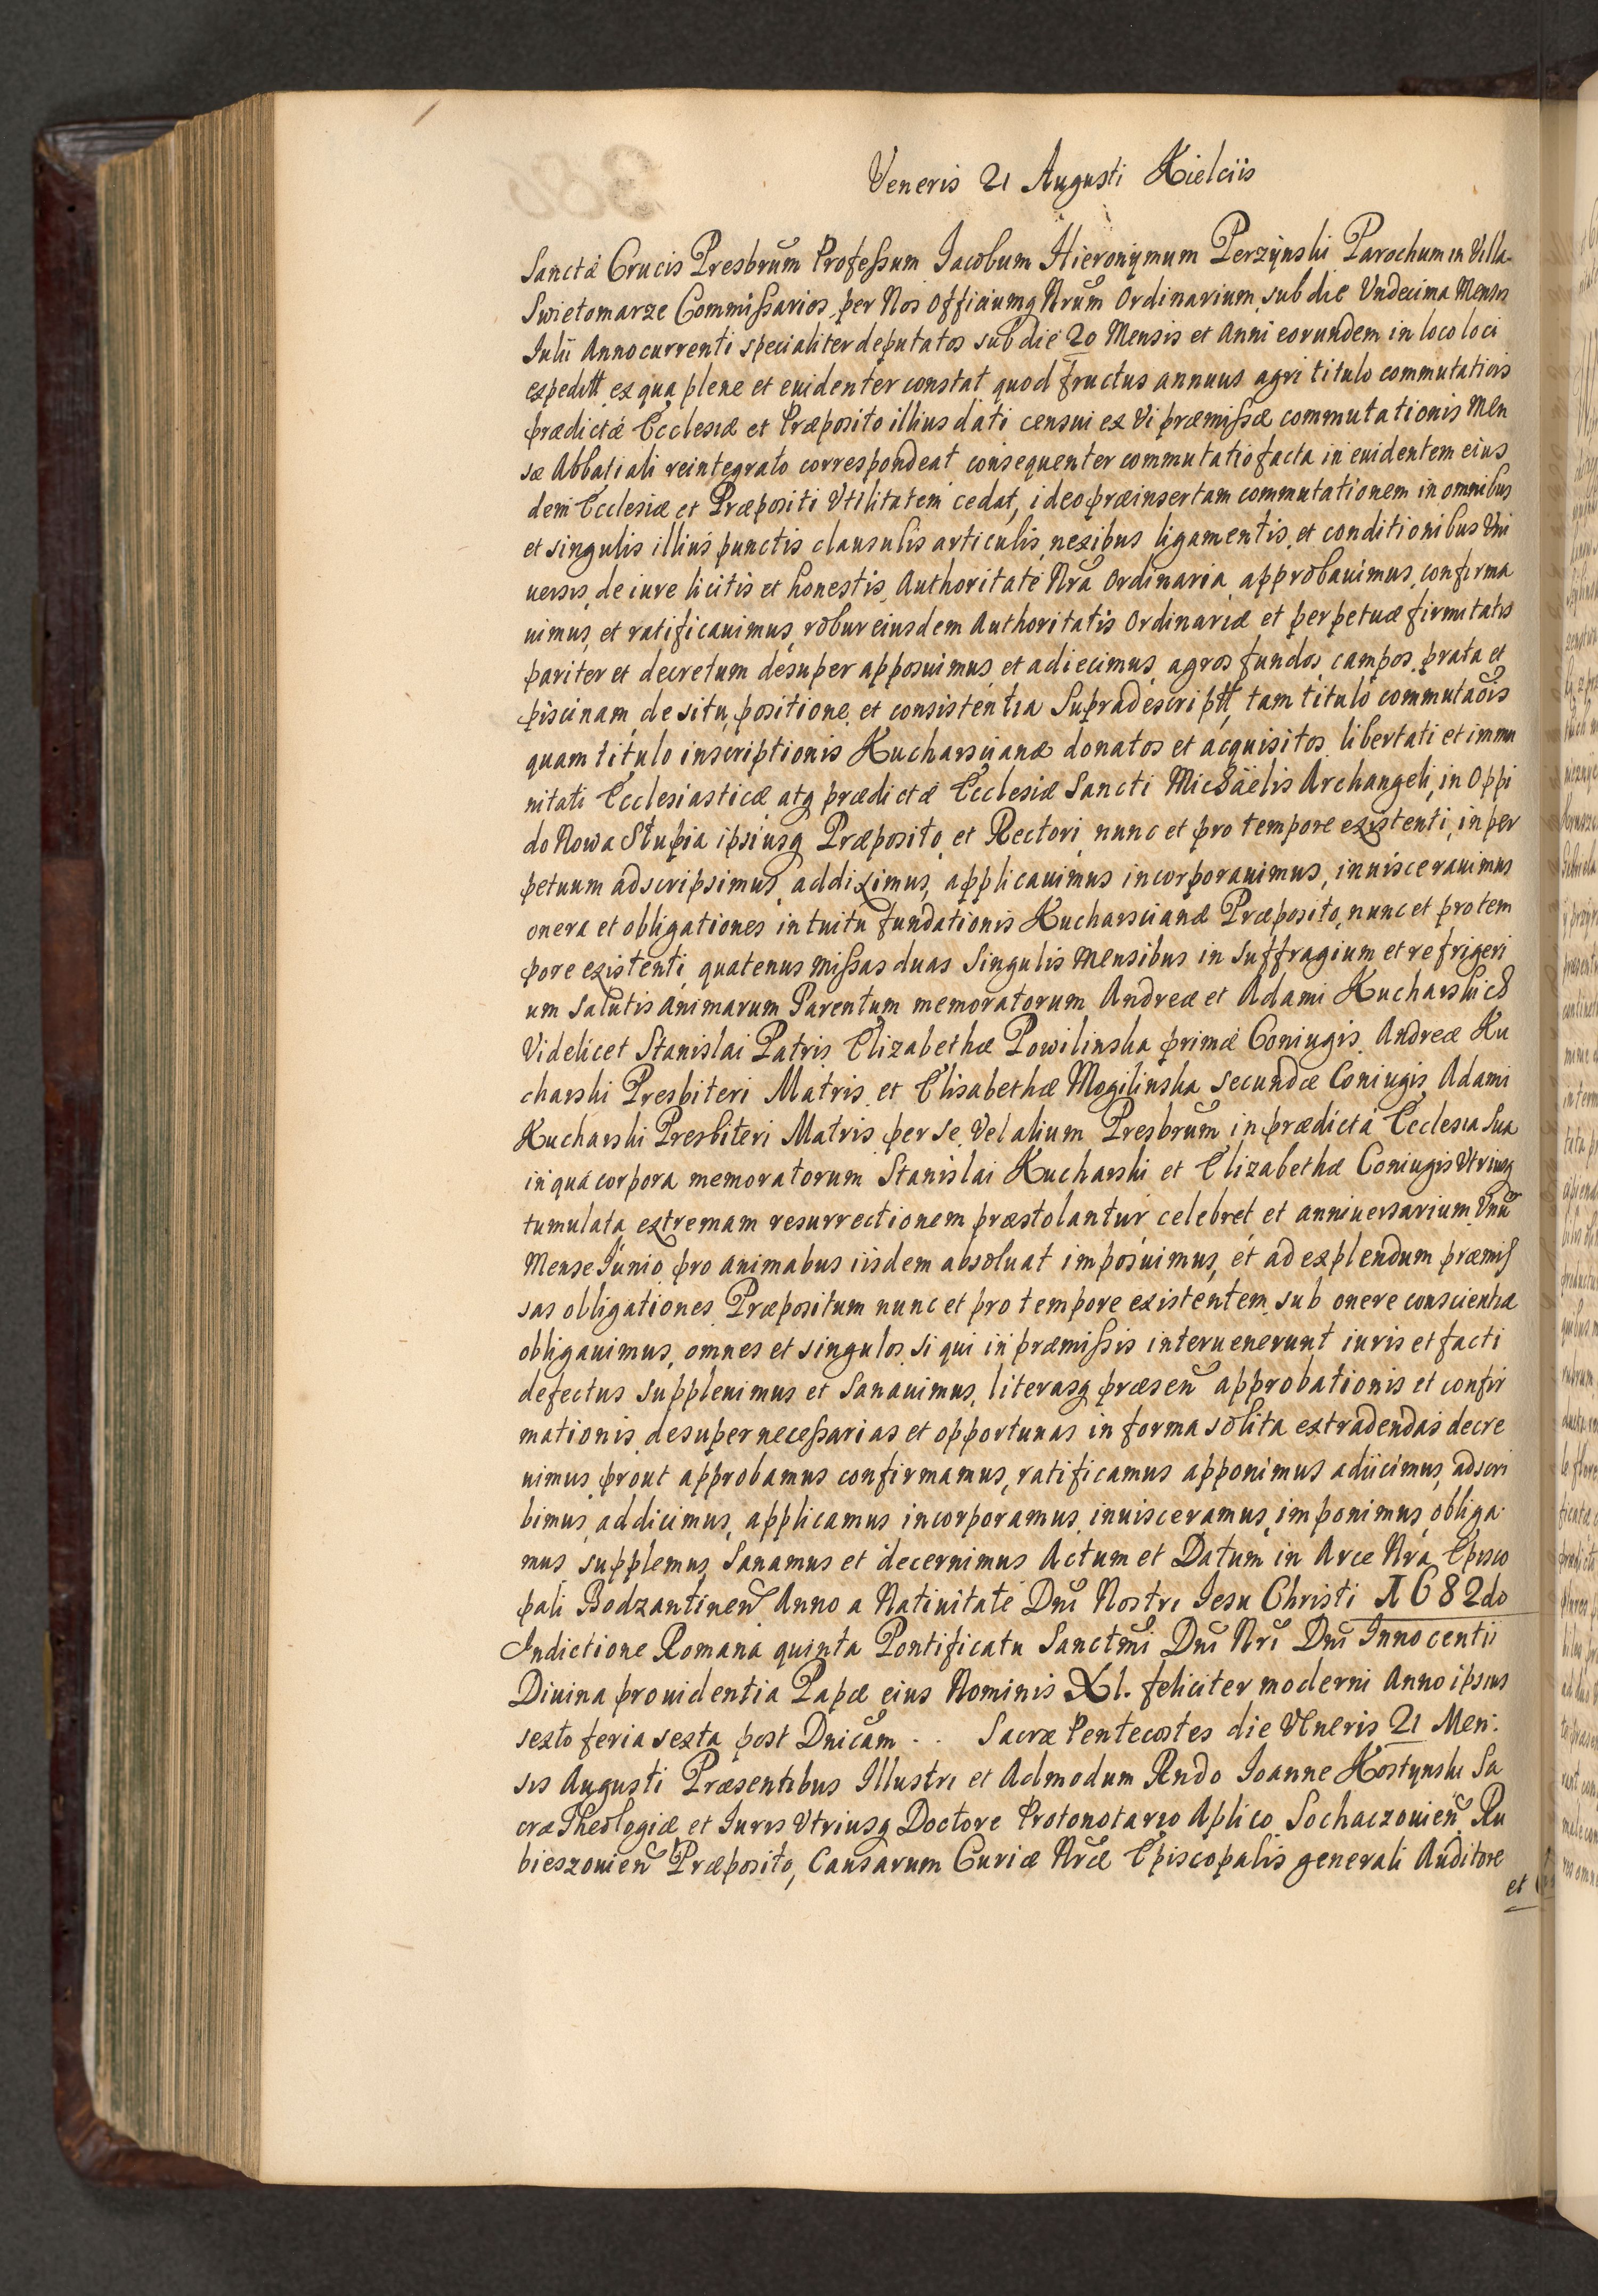 Veneris 21 Augusti Kielciis
Sanctæ Crucis Presbrum Professum Jacobum Hieronymum Perzynski Parochum in Villa
Swietomarze Commissarios per Nos Officiumq Nrum Ordinarium sub die Vndecima Mensis
Julii Anno currenti specialiter deputatos sub die 20 Mensis et Anni eorundem in loco loci
expeditt ex qua plene et euidenter constat quod fructus annuus agri titulo commutationis
prædictæ Ecclesiæ et Præposito illius dati censui ex Vi præmissæ commutationis Men
sæ Abbatiali reintegrato correspondeat consequenter commutatio facta in euidentem eius
dem Ecclesiæ et Præpositi Vtilitatem cedat, ideo præinsertam commutationem in omnibus
et singulis illius punctis clausulis articulis nexibus ligamentis et conditionibus Vni
uersis de iure licitis et honestis Authoritate Nra Ordinaria approbauimus confirma
uimus et ratificauimus robur eiusdem Authoritatis Ordinariæ et perpetuæ firmitatis
pariter et decretum desuper apposuimus et adiecimus agros fundos campos prata et
piscinam de situ positione et consistentia Supradescriptt tam titulo commutaōis
quam titulo inscriptionis Kucharscianæ donatos et acquisitos libertati et immu
nitati Ecclesiasticæ atq prædictæ Ecclesiæ Sancti Michaelis Archangeli in Oppi
do Nowa Stupia ipsiusq Præposito et Rectori nunc et pro tempore existenti in per
petuum adscripsimus addiximus, applicauimus incorporauimus, inuiscerauimus
onera et obligationes intuitu fundationis Kucharscianæ Præposito nunc et pro tem
pore existenti quatenus missas duas Singulis Mensibus in suffragium et refrigeri
um salutis animarum Parentum memoratorum Andreæ et Adami Kucharskich
Videlicet Stanislai Patris Elizabethæ Powilinska primæ Coniugis Andreæ Ku
charski Presbiteri Matris et Elisabethæ Mogilinska secundæ Coniugis Adami
Kucharski Presbiteri Matris per se Vel alium Presbrum in prædicta Ecclesia sua
in qua corpora memoratorum Stanislai Kucharski et Elizabethæ Coniugis Vtriusq
tumulata extremam resurrectionem præstolantur celebret et anniuersarium Vnū
Mense Junio pro animabus iisdem absoluat imposuimus, et ad explendum præmis
sas obligationes Præpositum nunc et pro tempore existentem sub onere conscientiæ
obligauimus, omnes et singulos si qui in præmissis interuenerunt iuris et facti
defectus suppleuimus et Sanauimus, literasq præsen approbationis et confir
mationis desuper necessarias et opportunas in forma solita extradendas decre
uimus prout approbamus confirmamus, ratificamus apponimus adiicimus, adscri
bimus addicimus, applicamus incorporamus inuisceramus, imponimus, obliga
mus supplemus, Sanamus et decernimus Actum et Datum in Arce Nra Episco
pali Bodzantinen Anno a Natiuitate Dni Nostri Jesu Christi 1682do
Indictione Romana quinta Pontificatu Sanctmi Dni Nri Dni Innocentii
Diuina prouidentia Papæ eius Nominis XI. feliciter moderni Anno ipsius
sexto feria sexta post Dnicam . . Sacræ Pentecostes die Veneris 21 Men.
sis Augusti Præsentibus Illustri et Admodum Rndo Joanne Kostynski Sa
cræ Theologiæ et Juris Vtriusq Doctore Protonotario Aplico Sochaczouien Ru
bieszouien Præposito, Causarum Curiæ Nræ Episcopalis generali Auditore
et